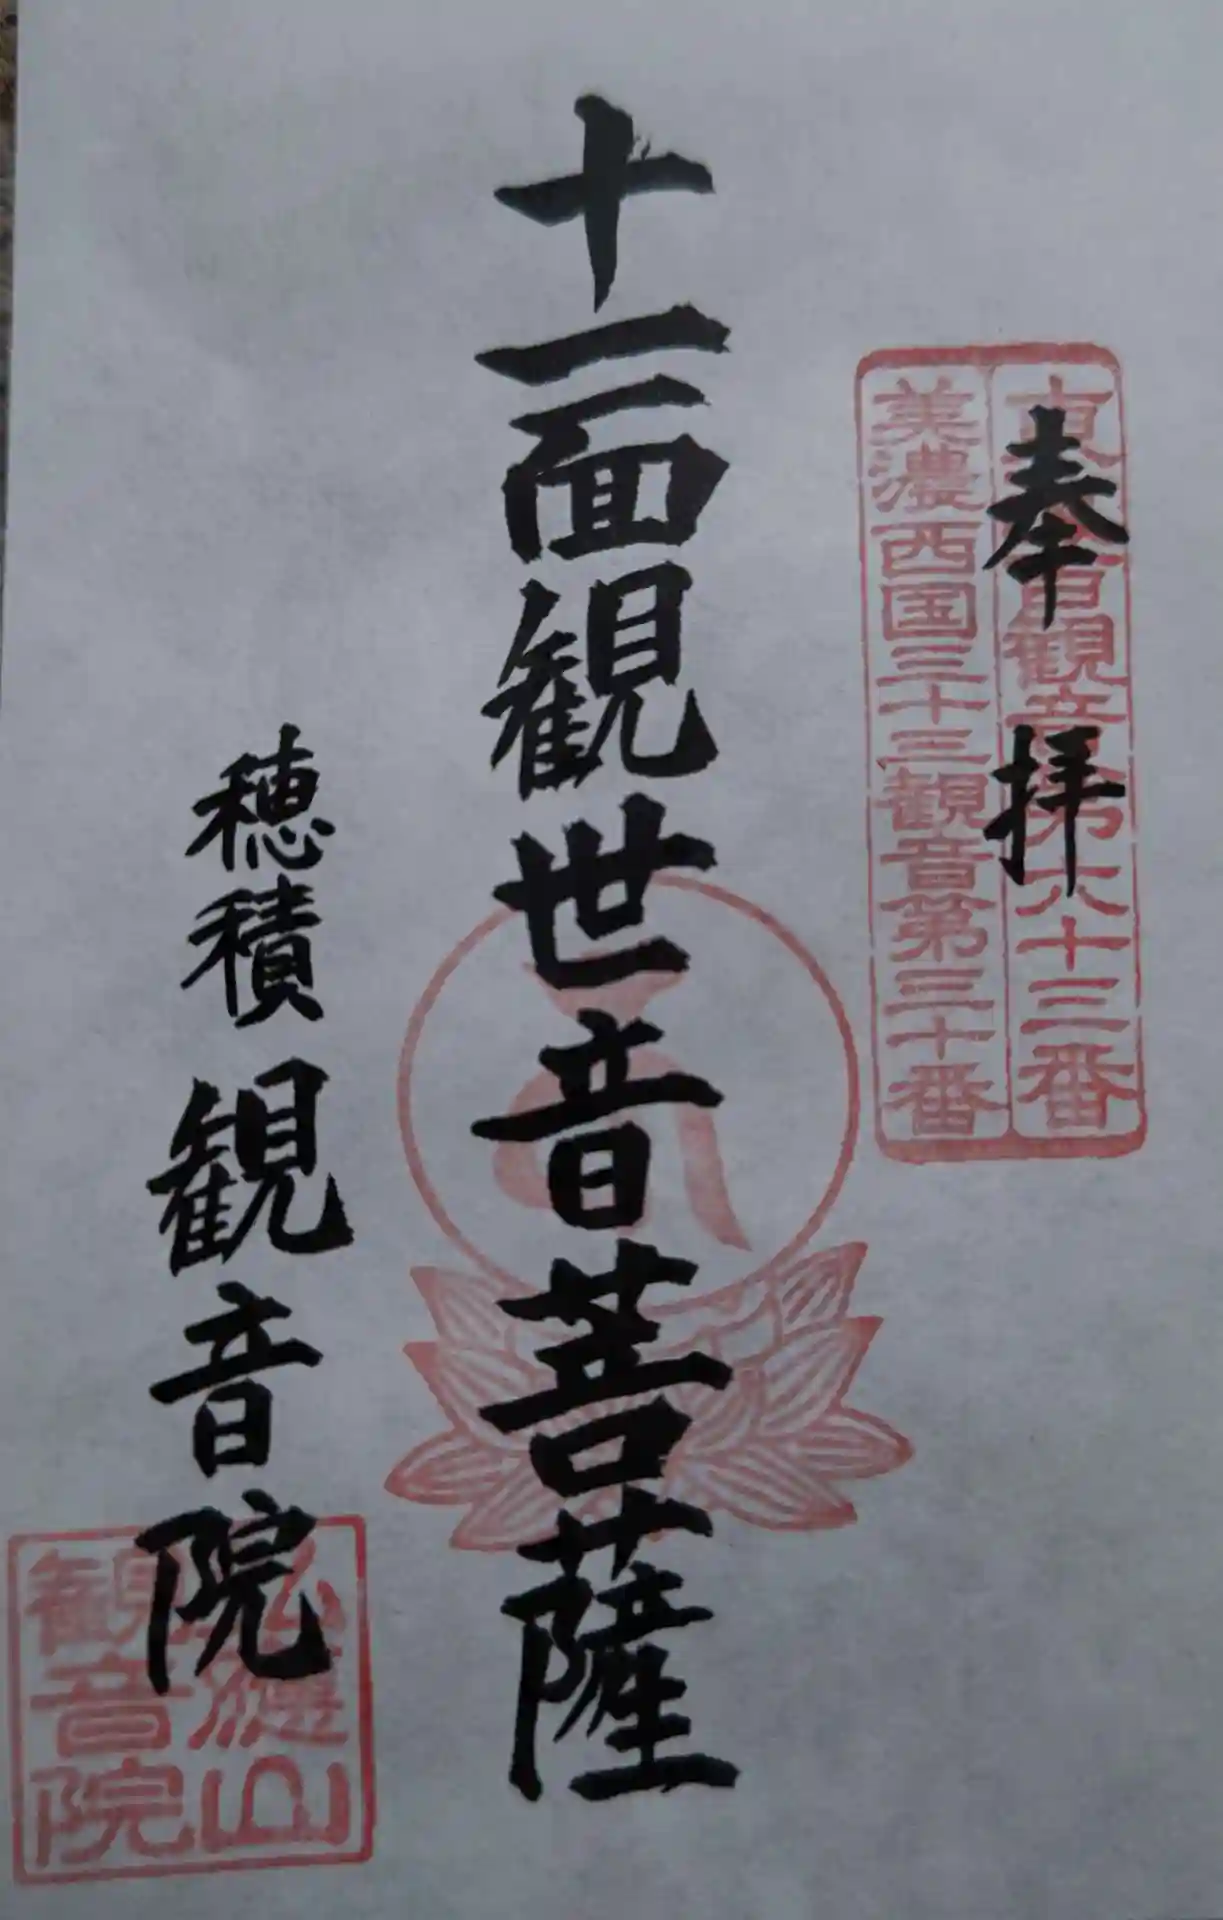 奉拝
東海百観音第六十三番
美濃西国三十三観音第三十番
十一面観世音菩薩
穂積 観音院
観音院